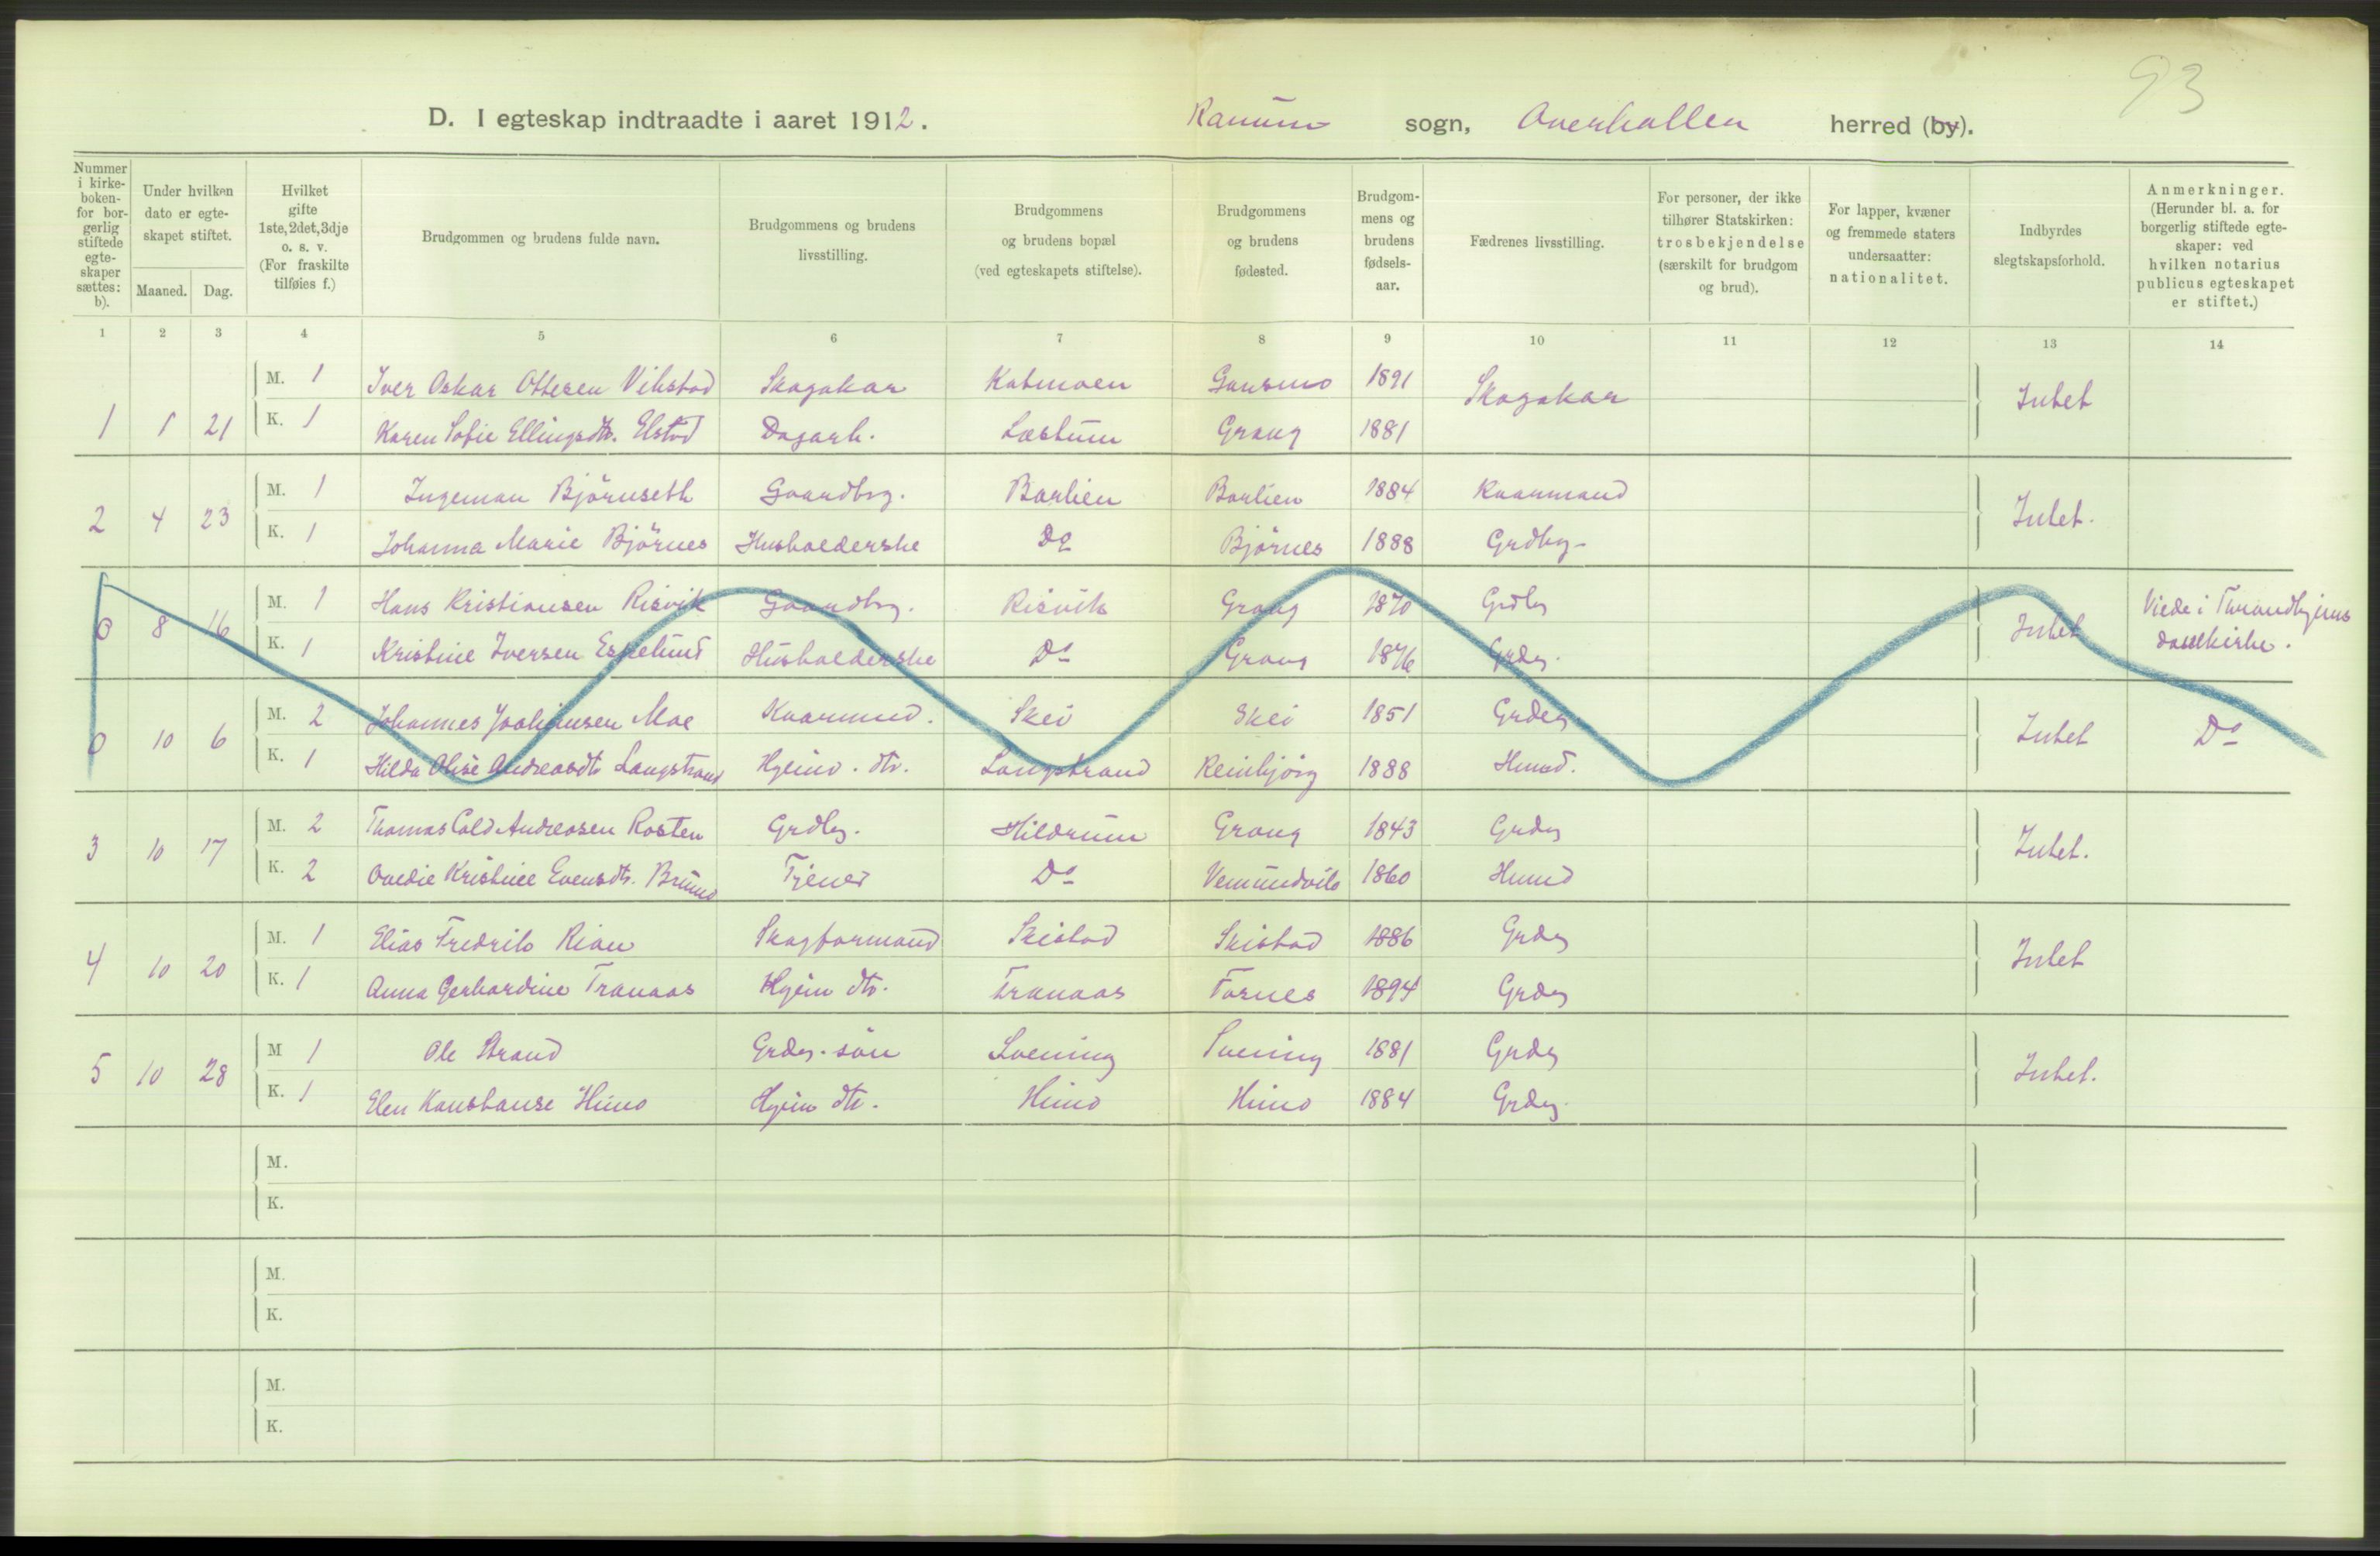 93
D. I egteskap indtraadte i aaret 1912. Ranum sogn, Overhallen herred (by).
Nummer i kirkeboken- for borgerlig stiftede egteskaper sættes: b).
Under hvilken dato er egteskapet stiftet.
Maaned. Dag.
Hvilket gifte 1ste, 2det, 3dje o. s. v. (For fraskilte tilføies f.)
Brudgommen og brudens fulde navn.
Brudgommens og brudens livsstilling.
Brudgommens og brudens bopæl (ved egteskapets stiftelse).
Brudgommens og brudens fødested.
Brudgommens og brudens fødselsaar.
Fædrenes livsstilling.
For personer, der ikke tilhører Statskirken: trosbekjendelse (særskilt for brudgom og brud).
For lapper, kvæner og fremmede staters undersaatter: nationalitet.
Indbyrdes slegtskapsforhold.
Anmerkninger. (Herunder bl. a. for borgerlig stiftede egteskaper: ved hvilken notarius publicus egteskapet er stiftet.)
1 2 3 4 5 6 7 8 9 10 11 12 13 14
M. 1 Iver Oskar Ottesen Vikstad Skogskar Katmoen Gansmo 1891 Skogskar Intet
1 1 21 K. 1 Karen Sofie Ellingsdtr. Elstad Dagarb. Læstum Grong 1881
M. 1 Ingeman Björnseth Gaardbrg. Barlien Barlien 1884 Kaarmand Intet.
2 4 23 K. 1 Johanna Marie Björnes Husholderske Do Björnes 1888 Grdbrg
M. 1 Hans Kristiansen Risvik Gaardbrg. Risvik Grong 1870 Grdbrg Intet Viede i Throndhjems domkirke.
0 8 16 K. 1 Kristine Iversen Espelund Husholderske Do Grong 1876 Grdbr.
M. 2 Johannes Moe Kaarmand. Skei Skei 1851 Grdbr Intet Do
0 10 6 K. 1 Hilda Olise Andreasdtr Langstrand Hjemv. dtr. Langstrand Reinbjörg 1888 Husmd.
M. 2 Thomas Cold Andreasen Rosten Grdbrg. Hildrum Grong 1843 Grdbr Intet.
3 10 17 K. 2 Ovedie Kristine Evensdtr. Do Vemundvik 1860 Husmd
M. 1 Elias Fredrik Rian Skogformand Skistad Skistad 1886 Grdbr Intet
4 10 20 K. 1 Anna Gerhardine Tranaas Hjem dtr. Tranaas Fornes 1894 Grdbr
M 1 Ole Strand Grdbr. sön Svening Svening 1881 Grdbr Intet.
5 10 28 K. 1 Elen Konstanse Himo Hjem dtr. Himo Himo 1884 Grdbr.
M.
K.
M.
K.
M.
K.